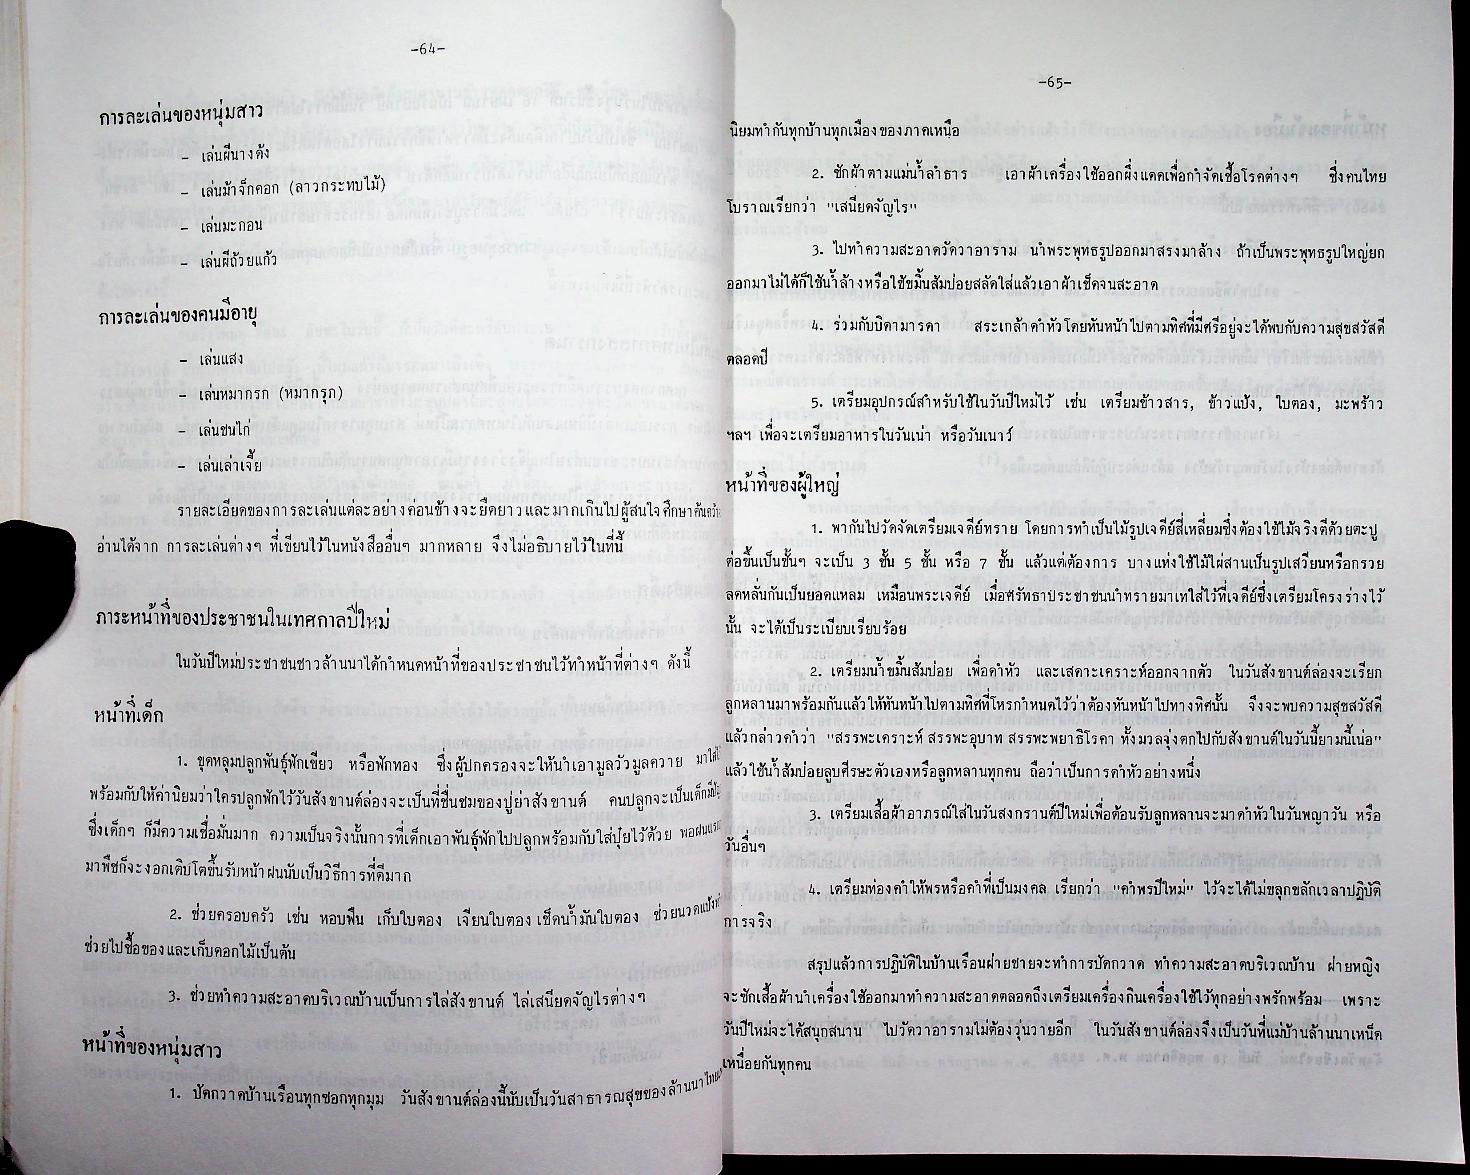 -64-
การละเล่นของหนุ่มสาว
- เล่นผีนางด้ง
- เล่นม้าจ๊กคอก (ลาวกระทบไม้)
- เล่นมะกอน
- เล่นผีถ้วยแก้ว
การละเล่นของคนมีอายุ
- เล่นแสง
- เล่นหมากรก (หมากรุก)
- เล่นชนไก่
- เล่นเล่าเจี้ย
รายละเอียดของการละเล่นแต่ละอย่างค่อนข้างจะยืดยาวและมากเกินไปผู้สนใจศึกษาค้นคว้า
อ่านได้จาก การละเล่นต่างๆ ที่เขียนไว้ในหนังสืออื่นๆ มากหลาย จึงไม่อธิบายไว้ในที่นี้
ภาระหน้าที่ของประชาชนในเทศกาลปีใหม่
ในวันปีใหม่ประชาชนชาวล้านนาได้กำหนดหน้าที่ของประชาชนไว้ทำหน้าที่ต่างๆ ดังนี้
หน้าที่เด็ก
1. ขุดหลุมปลูกพันธุ์ฟักเขียว หรือฟักทอง ซึ่งผู้ปกครองจะให้นำเอามูลวัวมูลควาย มาใส่
พร้อมกับให้ค่านิยมว่าใครปลูกฟักไว้วันสังขานต์ล่องจะเป็นที่ชื่นชมของปู่ย่าสังขานต์ คนปลูกจะเป็นเด็กมี
ซึ่งเด็กๆ ก็มีความเชื่อมั่นมาก ความเป็นจริงนั้นการที่เด็กเอาพันธุ์ฟักไปปลูกพร้อมกับใส่ปุ๋ยไว้ด้วย พอฝน
มาพืชก็จะงอกเติบโตขึ้นรับหน้าฝนนับเป็นวิธีการที่ดีมาก
2. ช่วยครอบครัว เช่น หอบฟืน เก็บใบตอง เจียนใบตอง เช็ดน้ำมันใบตอง ช่วยนวดแป้ง
ช่วยไปซื้อของและเก็บดอกไม้เป็นต้น
3. ช่วยทำความสะอาดบริเวณบ้านเป็นการไล่สังขานต์ ไล่เสนียดจัญไรต่างๆ
หน้าที่ของหนุ่มสาว
1. ปัดกวาดบ้านเรือนทุกซอกทุกมุม วันสังขานต์ล่องนี้นับเป็นวันสาธารณสุขของล้านนาไทย
-65-
นิยมทำกันทุกบ้านทุกเมืองของภาคเหนือ
2. ซักผ้าตามแม่น้ำลำธาร เอาผ้าเครื่องใช้ออกผึ่งแดดเพื่อกำจัดเชื้อโรคต่างๆ ซึ่งคนไทย
โบราณเรียกว่า "เสนียดจัญไร"
3. ไปทำความสะอาดวัดวาอาราม นำพระพุทธรูปออกมาสรงมาล้าง ถ้าเป็นพระพุทธรูปใหญ่ยก
ออกมาไม่ได้ก็ใช้น้ำล้างหรือใช้ขมิ้นส้มป่อยสลัดใส่แล้วเอาผ้าเช็ดจนสะอาด
4. ร่วมกับบิดามารดา สระเกล้าดำหัวโดยหันหน้าไปตามทิศที่มีศรีอยู่จะได้พบกับความสุขสวัสดี
ตลอดปี
5. เตรียมอุปกรณ์สำหรับใช้ในวันปีใหม่ไว้ เช่น เตรียมข้าวสาร, ข้าวแป้ง, ใบตอง, มะพร้าว
ฯลฯ เพื่อจะเตรียมอาหารในวันเน่า หรือวันเนาว์
หน้าที่ของผู้ใหญ่
1. พากันไปวัดจัดเตรียมเจดีย์ทราย โดยการทำเป็นไม้รูปเจดีย์สี่เหลี่ยมซึ่งต้องใช้ไม้จริงตีด้วยตะปู
ต่อขึ้นเป็นชั้นๆ จะเป็น 3 ชั้น 5 ชั้น หรือ 7 ชั้น แล้วแต่ต้องการ บางแห่งใช้ไม้ไผ่สานเป็นรูปเสวียนหรือกรวย
ลดหลั่นกันเป็นยอดแหลม เหมือนพระเจดีย์ เมื่อศรัทธาประชาชนนำทรายมาเทใส่ไว้ที่เจดีย์ซึ่งเตรียมโครงร่างไว้
นั้น จะได้เป็นระเบียบเรียบร้อย
2. เตรียมน้ำขมิ้นส้มป่อย เพื่อดำหัว และเสดาะเคราะห์ออกจากตัว ในวันสังขานต์ล่องจะเรียก
ลูกหลานมาพร้อมกันแล้วให้หันหน้าไปตามทิศที่โหรกำหนดไว้ว่าต้องหันหน้าไปทางทิศนั้น จึงจะพบความสุขสวัสดี
แล้วกล่าวคำว่า "สรรพะเคราะห์ สรรพะอุบาท สรรพะพยาธิโรคา ทั้งมวลจุ่งตกไปกับสังขานต์ในวันนี้ยามนี้เน่อ"
แล้วใช้น้ำส้มป่อยลูบศีรษะตัวเองหรือลูกหลานทุกคน ถือว่าเป็นการดำหัวอย่างหนึ่ง
3. เตรียมเสื้อผ้าอาภรณ์ใส่ในวันสงกรานต์ปีใหม่เพื่อต้อนรับลูกหลานจะมาดำหัวในวันพญาวัน หรือ
วันอื่นๆ
4. เตรียมท่องคำให้พรหรือคำที่เป็นมงคล เรียกว่า "คำพรปีใหม่" ไว้จะได้ไม่ขลุกขลักเวลาปฏิบัติ
การจริง
สรุปแล้วการปฏิบัติในบ้านเรือนฝ่ายชายจะทำการปัดกวาด ทำความสะอาดบริเวณบ้าน ฝ่ายหญิง
จะซักเสื้อผ้านำเครื่องใช้ออกมาทำความสะอาดตลอดถึงเตรียมเครื่องกินเครื่องใช้ไว้ทุกอย่างพรักพร้อม เพราะ
วันปีใหม่จะได้สนุกสนาน ไปวัดวาอารามไม่ต้องวุ่นวายอีก ในวันสังขานต์ล่องจึงเป็นวันที่แม่บ้านล้านนาเหน็ด
เหนื่อยกันทุกคน